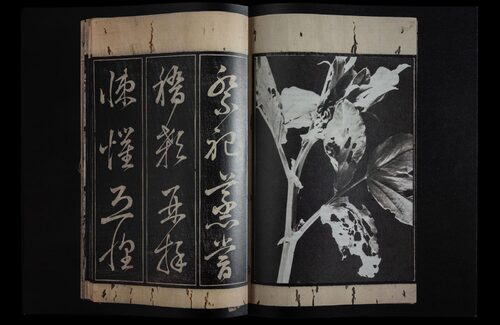 祭祀蒸嘗
稽顙再拜
悚懼恐惶